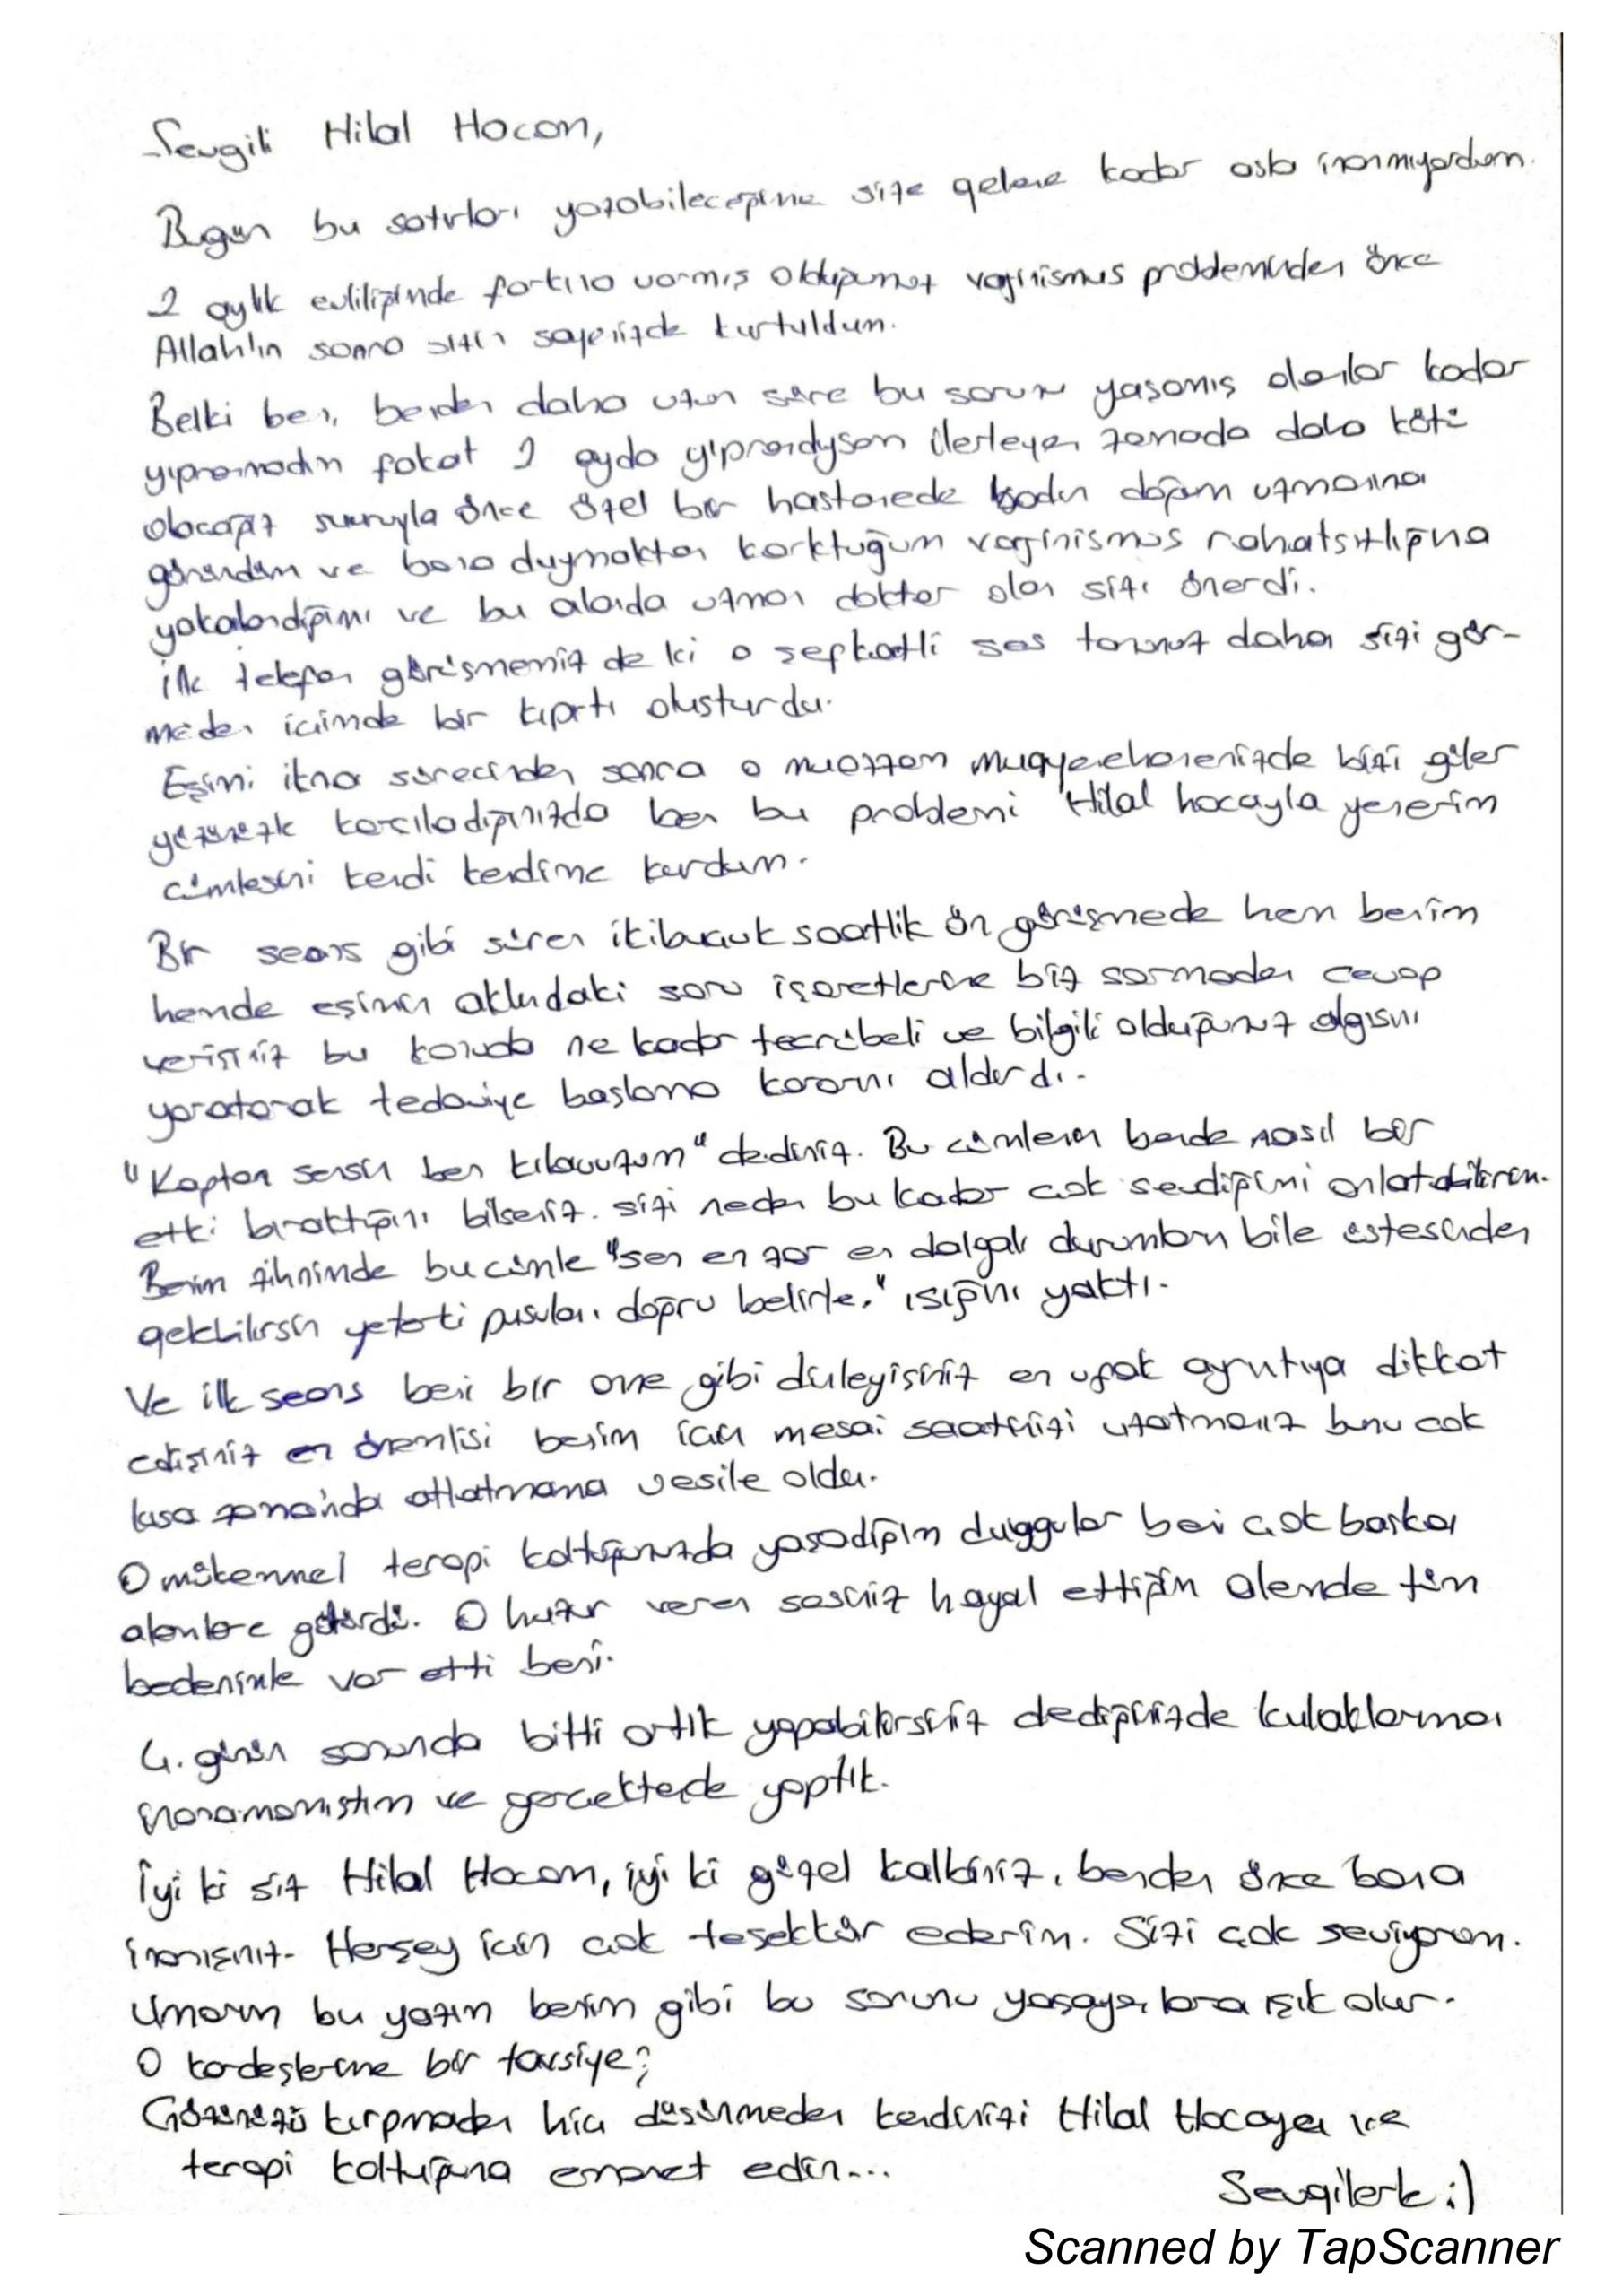 Sevgili Hilal Hocam,
Bugün bu satırları yazabileceğime size gelene kadar asla inanmıyordum.
2 aylık evliliğimde farkına varmış olduğumuz vajinismus probleminden önce
Allah'ın sonra sizin sayenizde kurtuldum.
Belki ben, benden daha uzun süre bu sorunu yaşamış olanlar kadar
yıpranmadım fakat 2 ayda yıprandıysam ilerleyen zamanda daha kötü
olacağız sanrıyla önce özel bir hastanede kadın doğum uzmanına
göründüm ve bana duymaktan korktuğum vajinismus rahatsızlığına
yakalandığımı ve bu alanda uzman doktor olan sizi önerdi.
İlk telefon görüşmemiz de ki o şefkatli ses tonunuz daha sizi gör-
meden içimde bir kıpırtı oluşturdu.
Eşimi ikna sürecinden sonra o muazzam muayenehanenizde bizi güler
yüzünüzle karşıladığınızda ben bu problemi Hilal hocayla yenerim
cümlesini kendi kendime kurdum.
Bir seans gibi süren ikibuçuk saatlik ön görüşmede hem benim
hemde eşimin aklındaki soru işaretlerine biz sormadan cevap
verişiniz bu konuda ne kadar tecrübeli ve bilgili olduğunuz algısını
yaratarak tedaviye başlama kararını aldırdı.
"Kaptan sensin ben kılavuzum" dediniz. Bu cümlenin bende nasıl bir
etki bıraktığını bilseniz. sizi neden bu kadar çok sevdiğimi anlatabilirem.
Benim zihnimde bu cümle "sen en zor en dalgalı durumların bile üstesinden
gelebilirsin yeterki pusulanı doğru belirle." ışığını yaktı.
Ve ilk seans beni bir anne gibi dinleyişiniz en ufak ayrıntıya dikkat
edişiniz en önemlisi benim için mesai saatinizi uzatmanız bunu çok
kısa zamanda atlatmama vesile oldu.
O mükemmel terapi koltuğunuzda yaşadığım duygular beni çok başka
alemlere götürdü. O huzur veren sesiniz hayal ettiğim alemde tüm
bedenimle var etti beni.
4. günün sonunda bitti artık yapabilirsiniz dediğinizde kulaklarıma
inanamamıştım ve gerçektende yaptık.
İyi ki siz Hilal Hocam, iyi ki güzel kalbiniz, benden önce bana
inanışınız. Herşey için çok teşekkür ederim. Sizi çok seviyorum.
Umarım bu yazım benim gibi bu sorunu yaşayanlara ışık olur.
O kardeşlerime bir tavsiye;
Gözünüzü kırpmadan hiç düşünmeden kendinizi Hilal Hocaya ve
terapi koltuğuna emanet edin...
Sevgilerle :)
Scanned by TapScanner